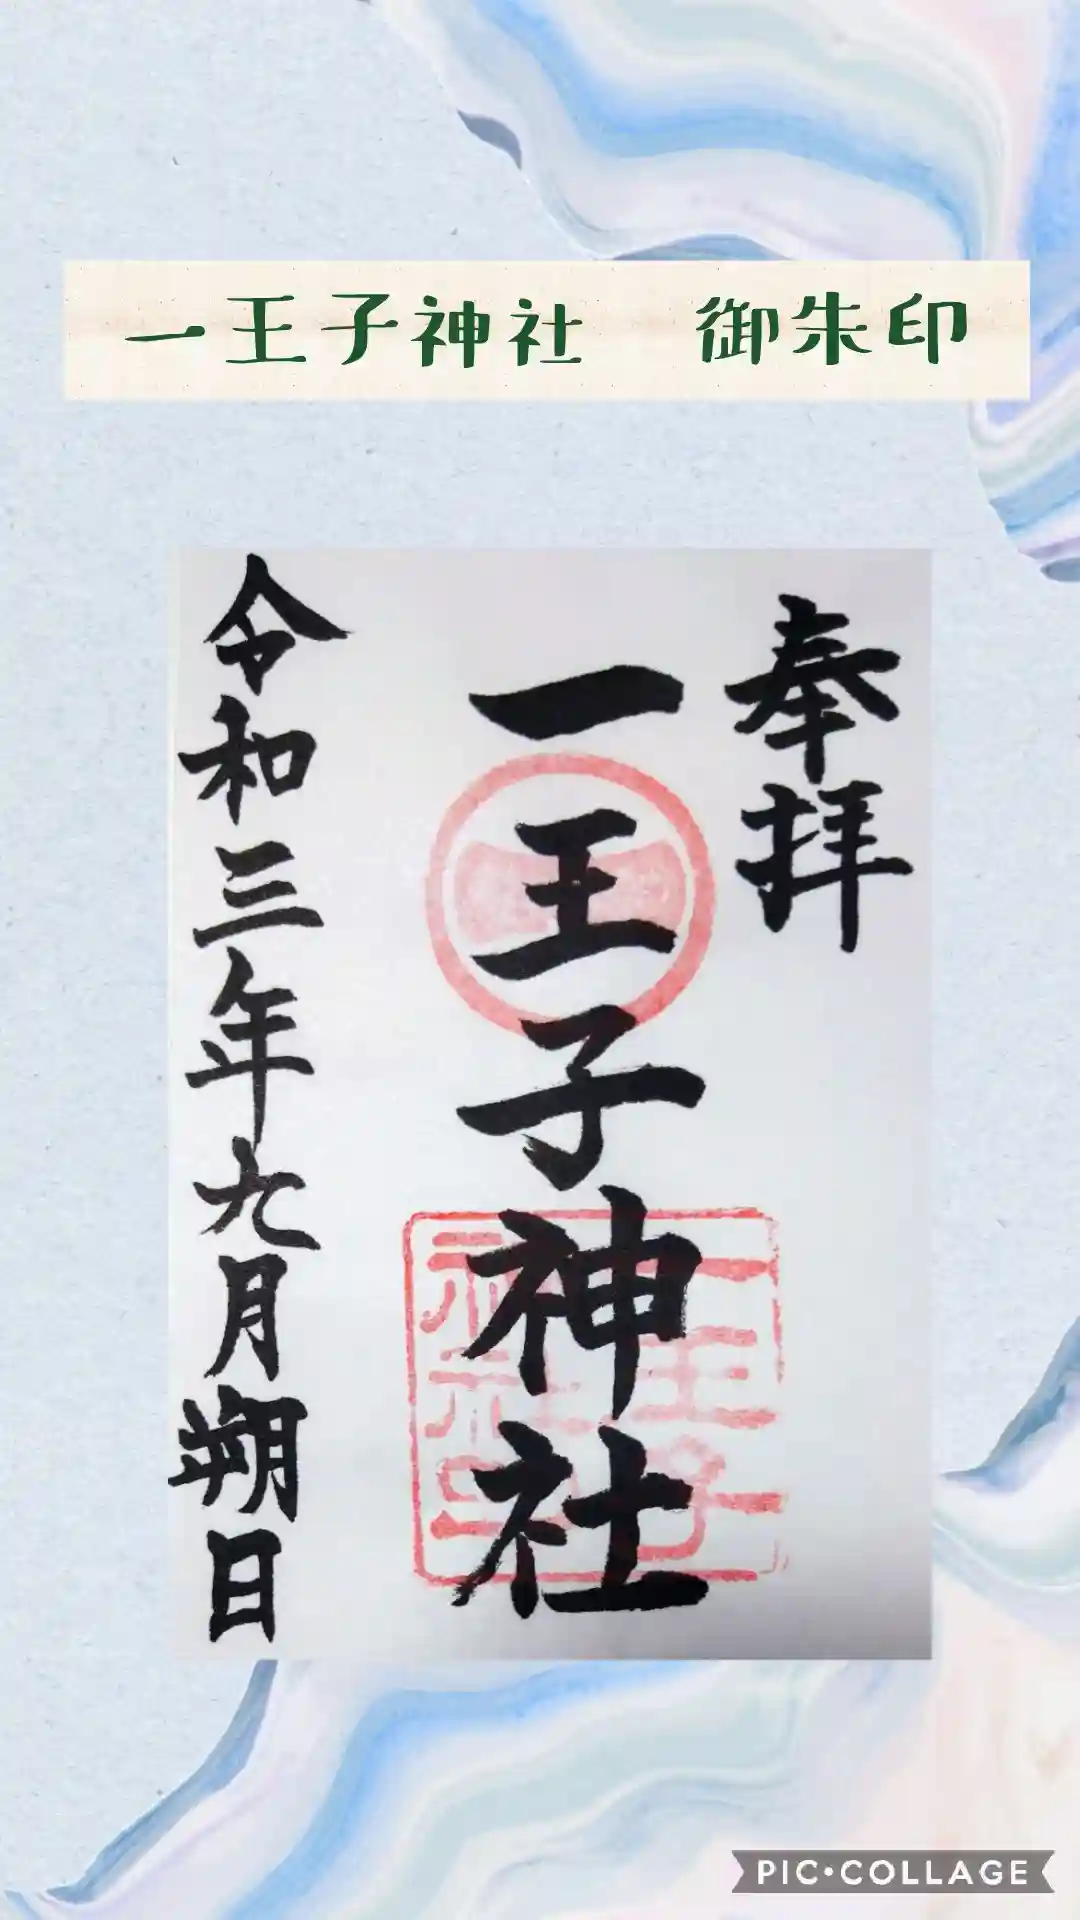 一王子神社　御朱印
奉拝
一王子神社
令和三年九月朔日
一王子
神社
PIC•COLLAGE